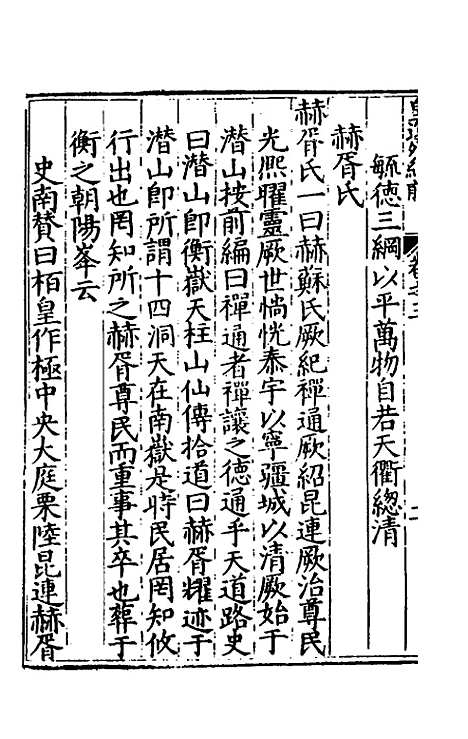 毓德三綱以平萬物自若天衢緫清
赫胥氏
赫胥氏一曰赫蘇氏厥紀禪通厥紹昆連厥治尊民
光熈曜靈厥世惝恍泰宇以寧疆城以清厥始于
潜山按前編曰禪通者禪讓之德通乎天道路史
曰潜山卽衡嶽天柱山仙傳拾道曰赫胥耀迹于
潜山卽所謂十四洞天在南嶽是時民居罔知攸
行出也罔知所之赫胥尊民而重事其卒也葬于
衡之朝陽峯云
史南賛曰栢皇作極中央大庭栗陸昆連赫胥